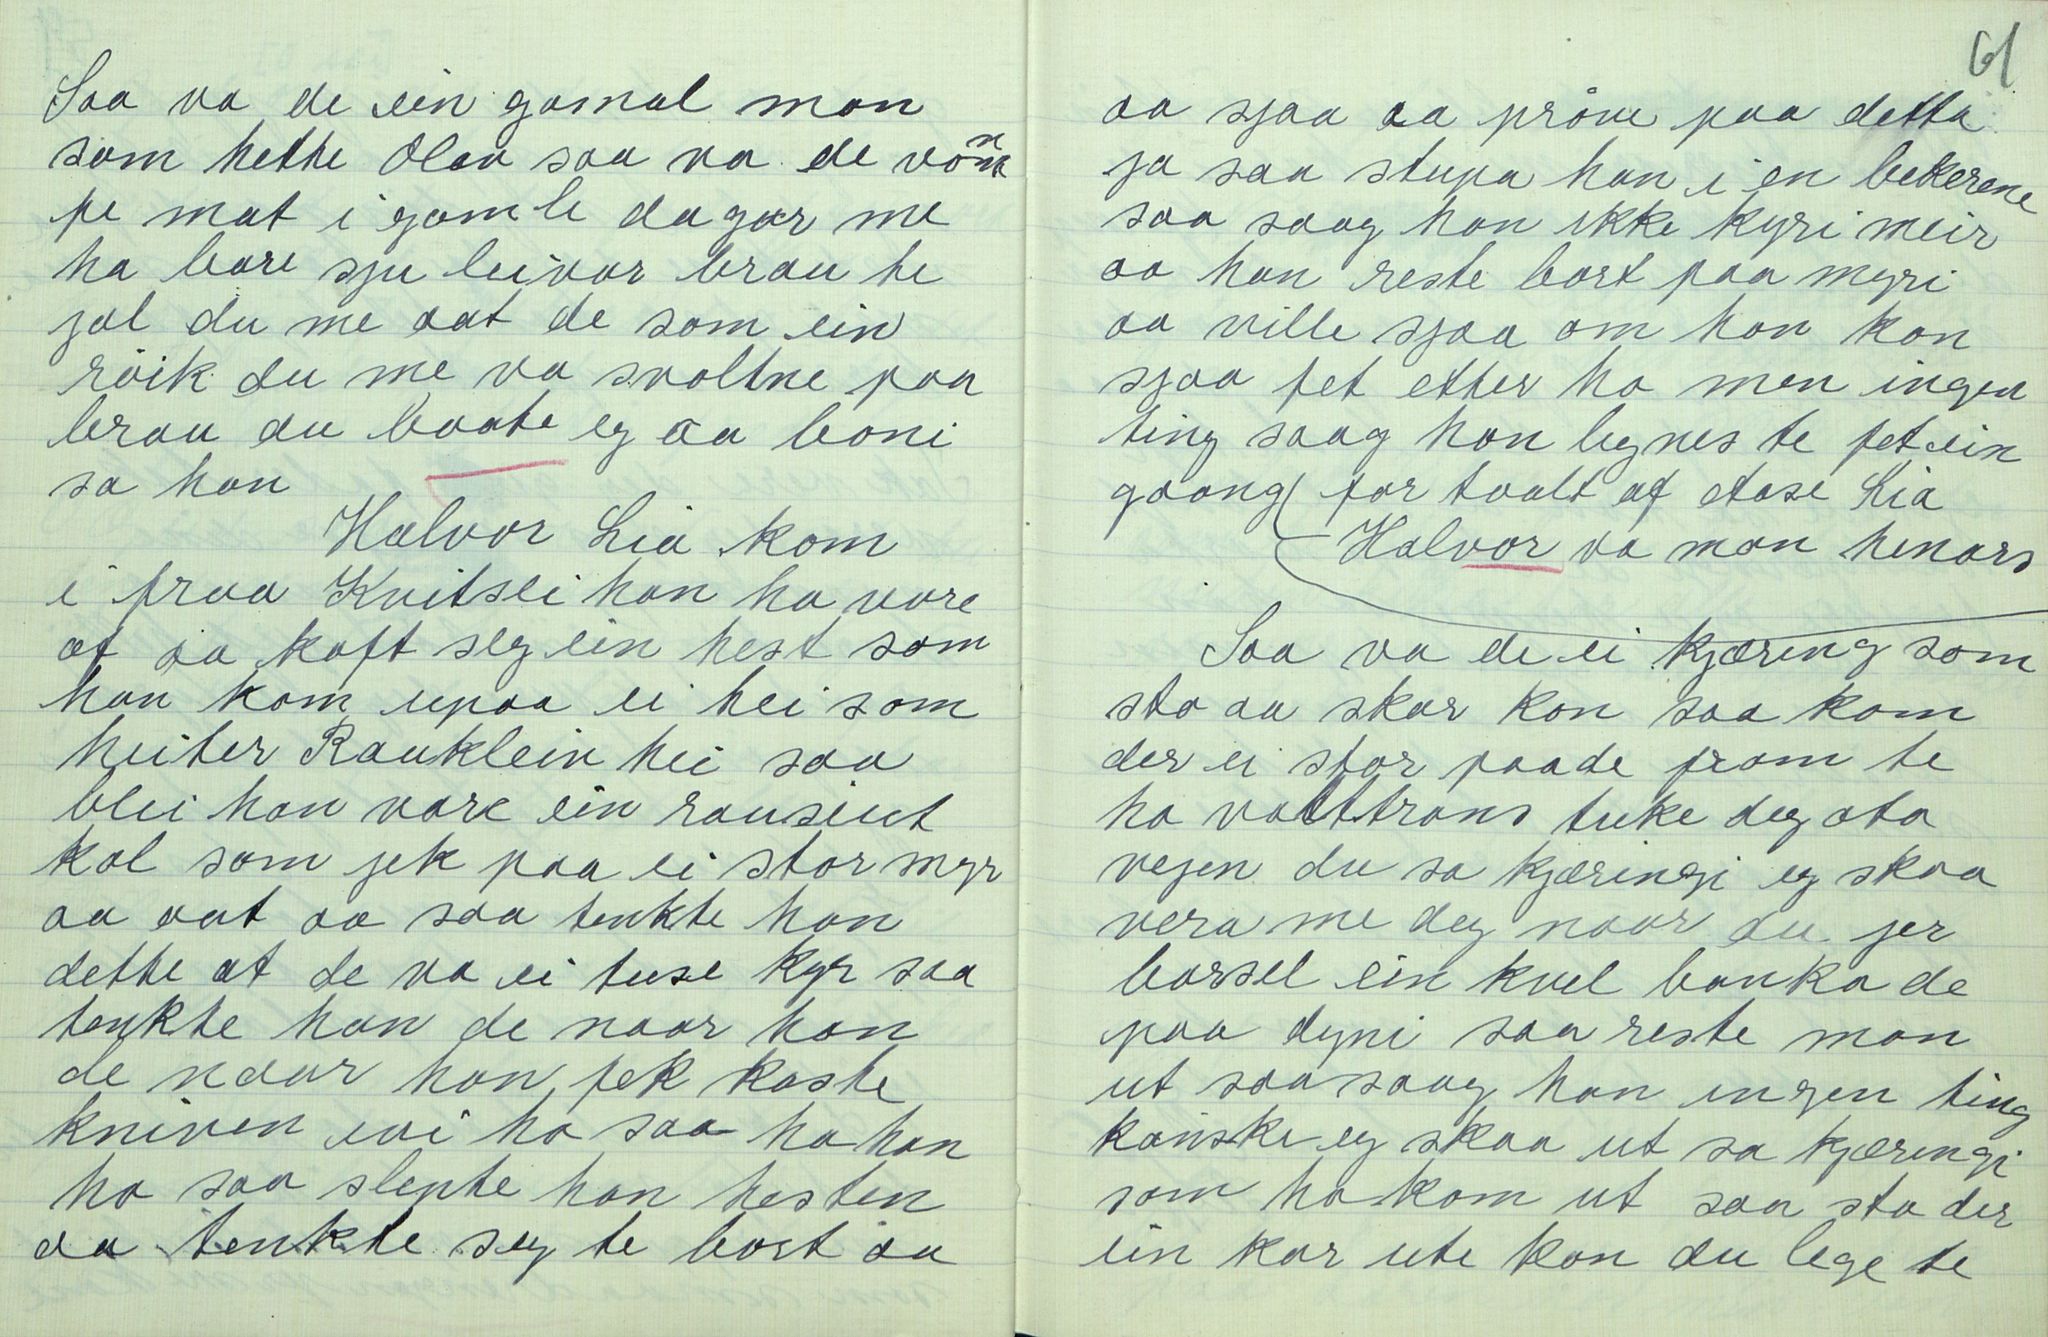 Saa va de ein gamal man
som hette Olav saa va de vån
pe mat i gamle dagar me
ha bare sju leivar brau te
jol du me aat de som ein
röik du me va svoltne paa
brau du baate eg aa boni
sa han
Halvor Lia kom
i fraa Kvitsei han ha vore
at aa kaft seg ein hest som
han kom upaa ei hei som
heiter Rauklein hei saa
blei han vare ein rausiut
kol som jek paa ei stor myr
aa aat aa saa tenkte han
dette at de va ei tuse kyr saa
tenkte han de naar han
de naar han fek kaste
kniven ivi ho saa ha han
ho saa slepte han hesten
aa tenkte seg te bort aa
61
aa sjaa aa pröve paa detta
ja saa stupa han i en bekerene
saa saag han ikke kyri meir
aa han reste bort paa myri
aa ville sjaa om han kan
sjaa fet etter ho men ingen
ting saag han legnes te fet ein
gaang for taalt af Aase Lia
Halvor va man henars
Saa va de ei kjæring som
sto aa skar kon saa kom
der ei stor paade fram te
ho valttrans tuke deg ata
vejen du sa kjæringi eg skaa
vera me deg naar du jer
barsel ein kvel banka de
paa dyni saa reste man
ut saa saag han ingen ting
kanske eg skaa ut sa kjæringi
som ho kom ut saa sto der
ein kar ute kan du lege te